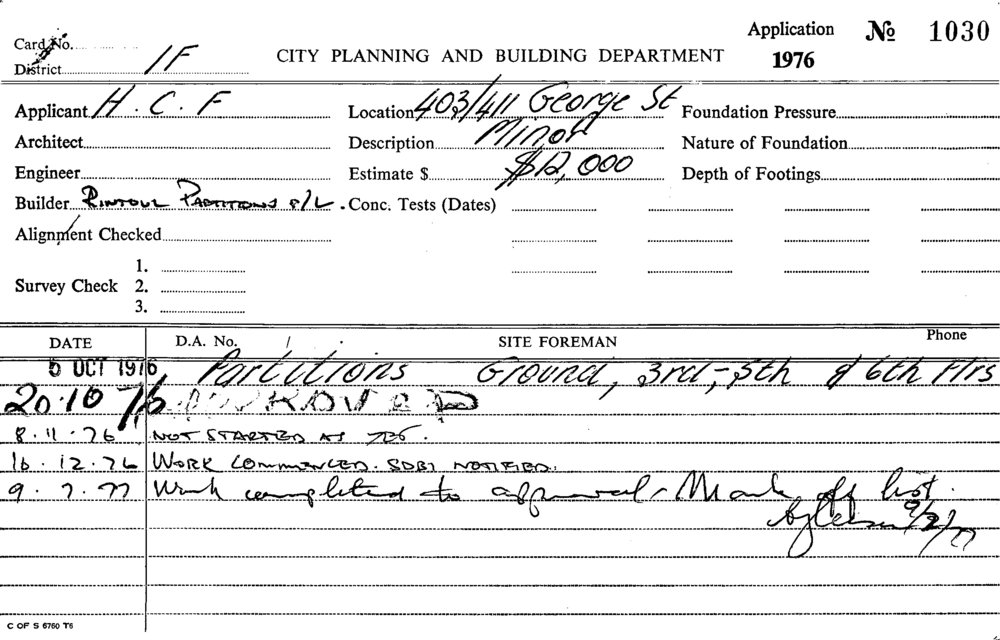 Application № 1030
Card No.
CITY PLANNING AND BUILDING DEPARTMENT
1976
District 1F
Applicant H.C.F Location 403/411 George St Foundation Pressure
Architect Description Minor Nature of Foundation
Engineer Estimate $ $12,000 Depth of Footings
Builder Rintoul Partitions P/L. Conc. Tests (Dates)
Alignment Checked
1.
Survey Check 2.
3.
DATE D.A. No. SITE FOREMAN Phone
5 OCT 1976 Partitions Ground, 3rd, 5th & 6th Flrs
20.10 76 APPROVED
8.11.76 NOT STARTED AS YET.
16.12.76 WORK COMMENCED. SDBI NOTIFIED.
9.2.77 Work completed to approval - Mark off list.
9/2/77
C OF S 6760 T6